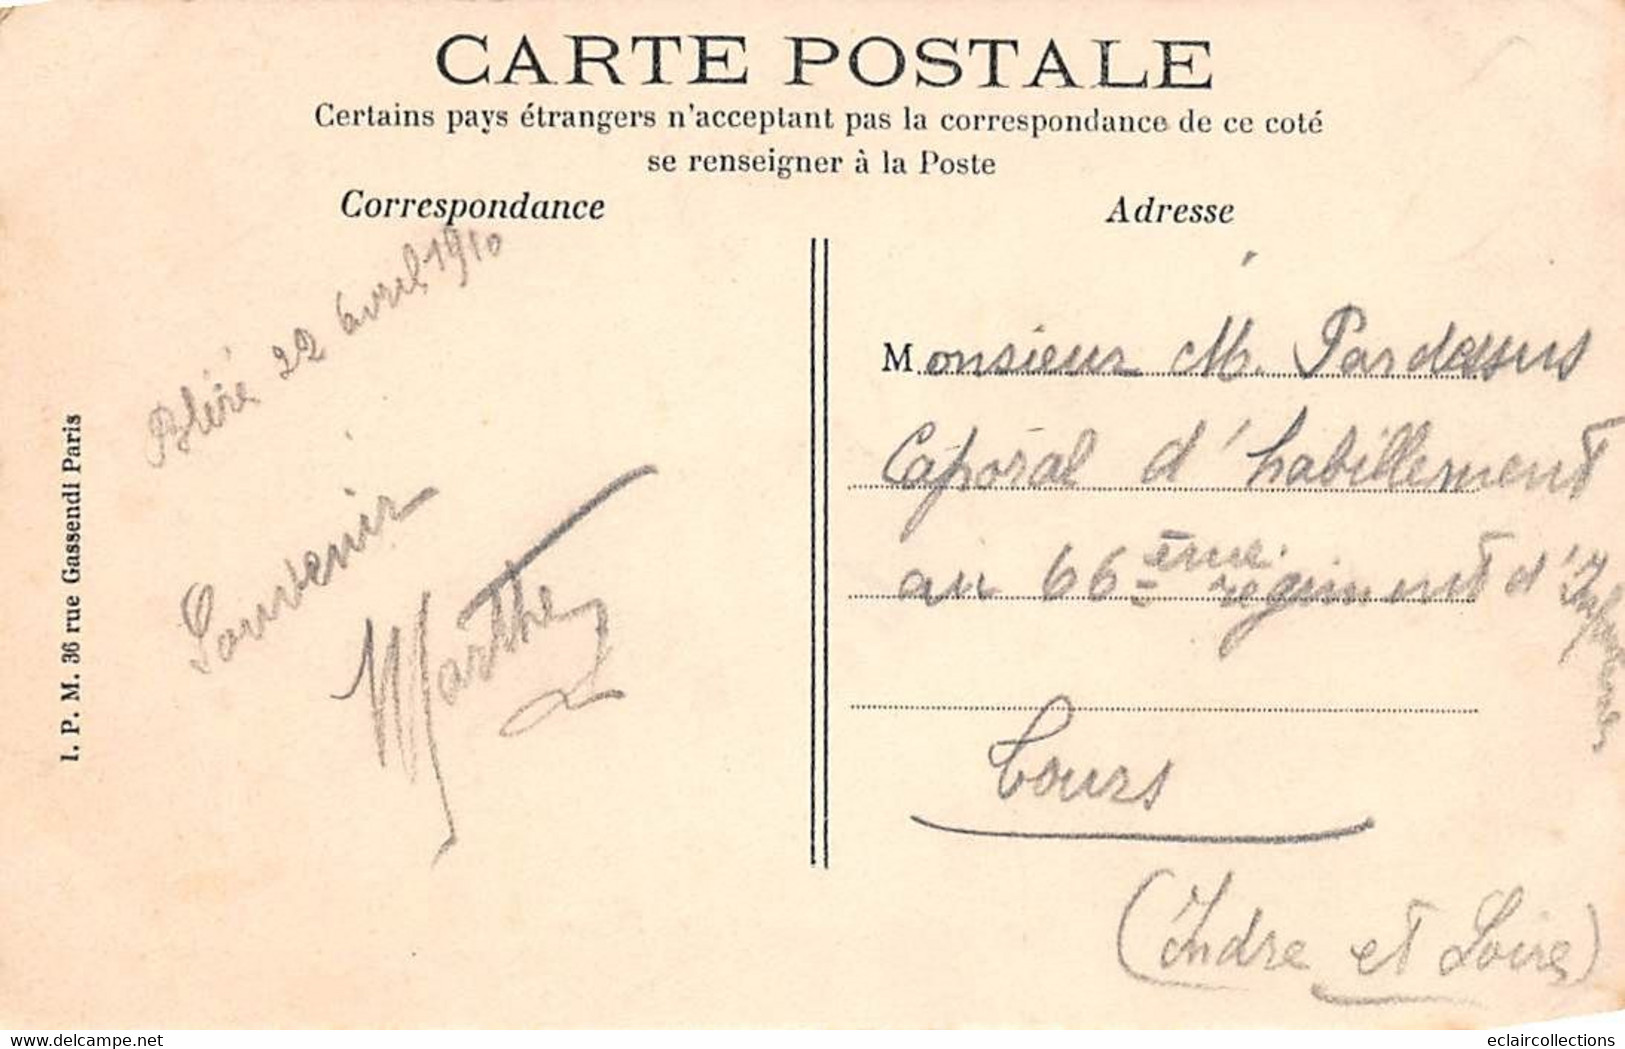 CARTE POSTALE
Certains pays étrangers n'acceptant pas la correspondance de ce coté
se renseigner à la Poste
Correspondance
Adresse
Bléré 22 avril 1910
Souvenir
Marthe
Monsieur M. Pardessus
Caporal d'habillement
au 66ème régiment d'Infanterie
Tours
(Indre et Loire)
I. P. M. 36 rue Gassendi Paris
delcampe.net
eclaircollections